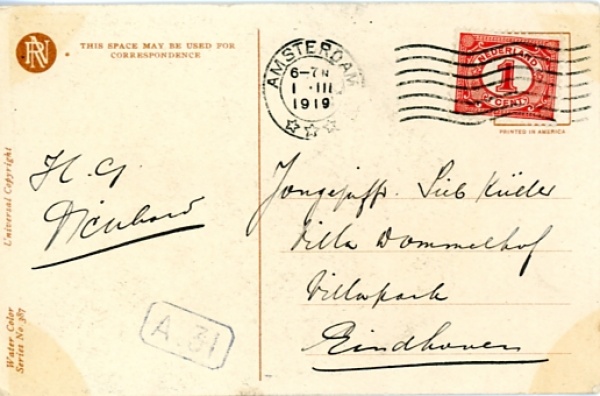 RN
THIS SPACE MAY BE USED FOR
CORRESPONDENCE
AMSTERDAM
6-7N
1 III
1919
NEDERLAND
1
CENT
PRINTED IN AMERICA
H. G.
Jongejuffr.
Villa Dommelhof
Villapark
Eindhoven
A.31
Universal Copyright
Water Color
Series No. 387